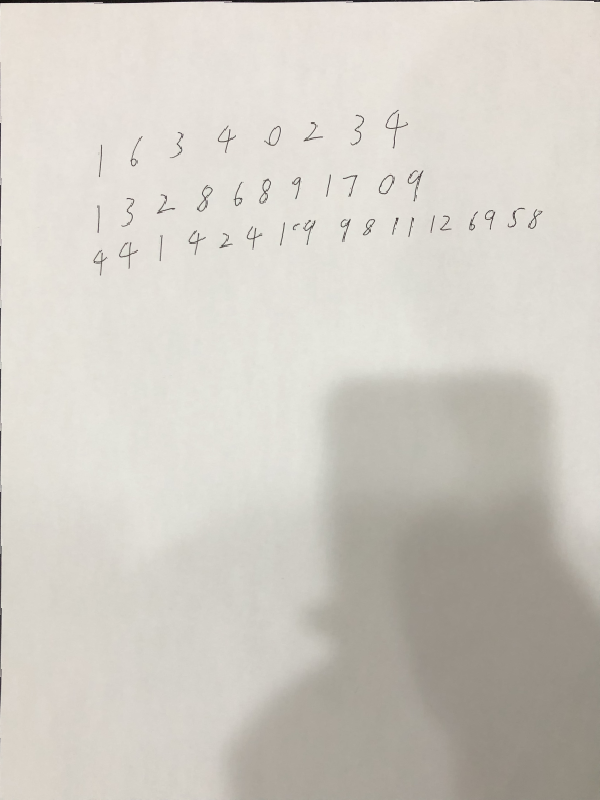 1 6 3 4 0 2 3 4
1 3 2 8 6 8 9 1 7 0 9
4 4 1 4 2 4 1 9 9 8 1 1 1 2 6 9 5 8